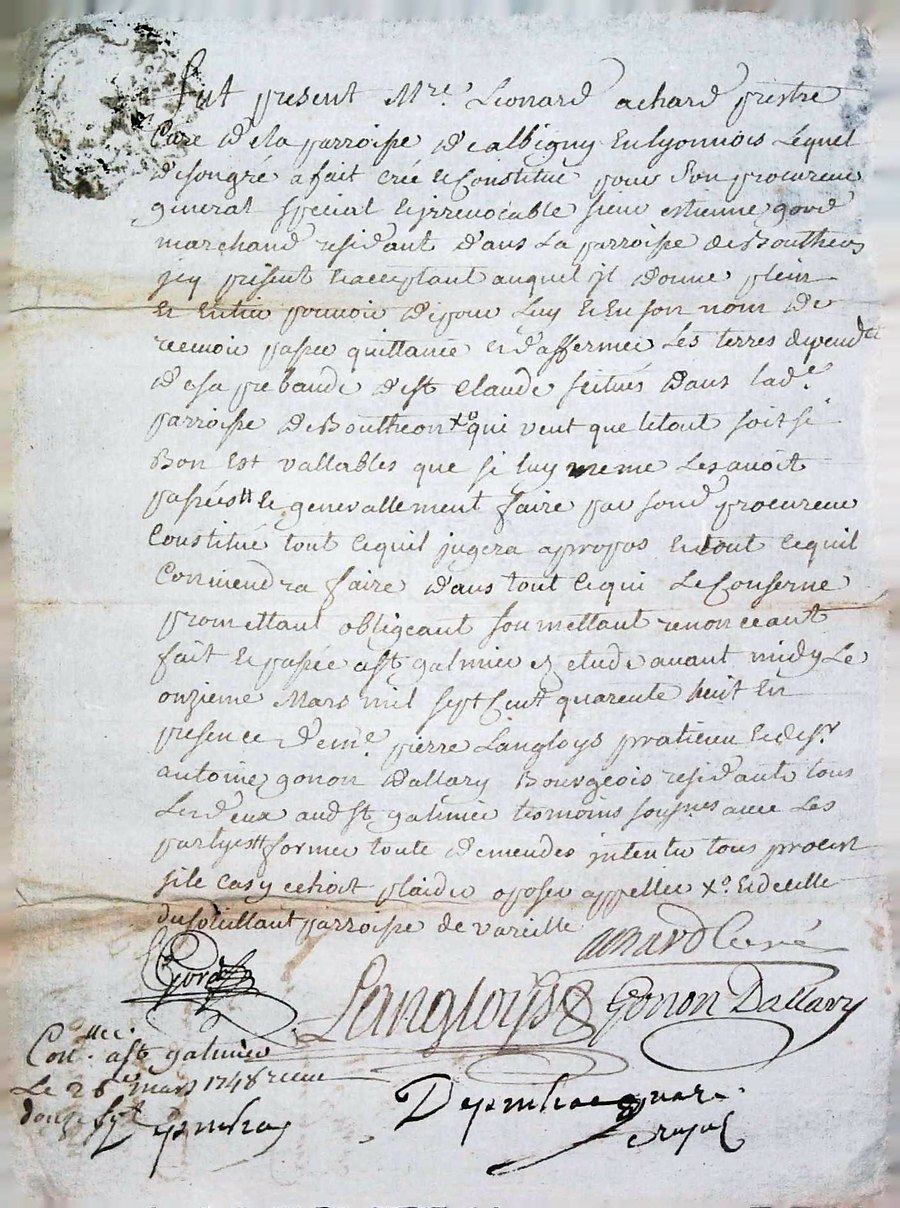 fut present Mre. Leonard achard prestre
Curé de la parroisse de albigny en lyonnois Lequel
de son gré a fait creé et Constitué pour son procureur
general special et jrrevocable sieur estienne gord
marchand residant dans La parroisse de Boutheon
jcy present et acceptant auquel jl donne plein
Et Entier pouvoir de pour Luy et en son nom de
recevoir passer quittance et d'affermer Les terres dependtes
de sa prebande de st Claude scitués dans lade.
parroisse de Boutheon xo qui veut que le tout soit si
Bon Est vallables que si luy meme Les avoit
passées et generallement faire par sond. procureur
Constitué tout ce quil jugera apropos et tout ce quil
Conviendra faire dans tout ce qui Le Conserne
promettant obligeant soumettant renonceant
fait et passé a st galmier ez etude avant midy Le
onzieme Mars mil sept Cent quarente huit En
presence de me. pierre Langloys praticien et de sr.
antoine gonon Dallary Bourgeois residants tous
Les deux aud. st galmier temoins soussignes avec Les
partyes former toute demendes jntenter tous proces
si le cas y echoit plaider oposer appeller xo. et de celle
du soleillant parroisse de vareille
achard Curé
Gord
Langloys Gonon Dallary
Conlle. a st galmier
Le 26 mars 1748 receu
douze s.